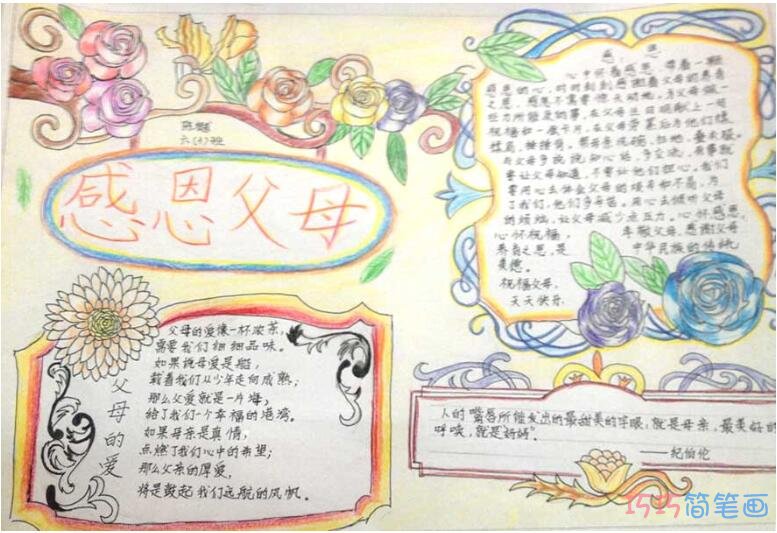 感恩父母
六(1)班
感 恩
心中怀着感恩,带着一颗
感恩的心,时时刻刻感谢着父母的养育
之恩。感恩不需要惊天动地,为父母做一
些力所能及的事,在父母生日时献上一句
祝福和一张卡片,在父母劳累后为他们揉
揉肩,捶捶背。帮母亲洗碗,扫地,叠衣服。
与父母多说说知心话,多交流,有事就
要让父母知道,不要让他们担心。我们
要用心去体会父母的艰辛和不易,为
了我们,他们多辛苦。用心去倾听父母
的烦恼,让父母减少点压力。心怀感恩,
心怀祝福,孝敬父母,感谢父母
养育之恩,是中华民族的传统
美德。
祝福父母,
天天快乐
父母的爱
父母的爱像一杯浓茶,
需要我们细细品味。
如果说母爱是船,
载着我们从少年走向成熟;
那么父爱就是一片海,
给了我们一个幸福的港湾。
如果母亲是真情,
点燃了我们心中的希望;
那么父亲的厚爱,
将是鼓起我们远航的风帆。
人的嘴唇所能发出的最甜美的字眼,就是母亲,最美好的
呼唤,就是“妈妈”。
——纪伯伦
5151简笔画